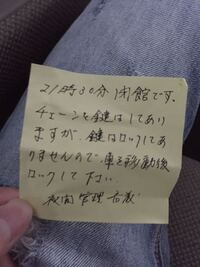 21時30分閉館です。
チェーンと鍵はしてあり
ますが、鍵はロックしてあ
りませんので車を移動後
ロックして下さい。
夜間管理者